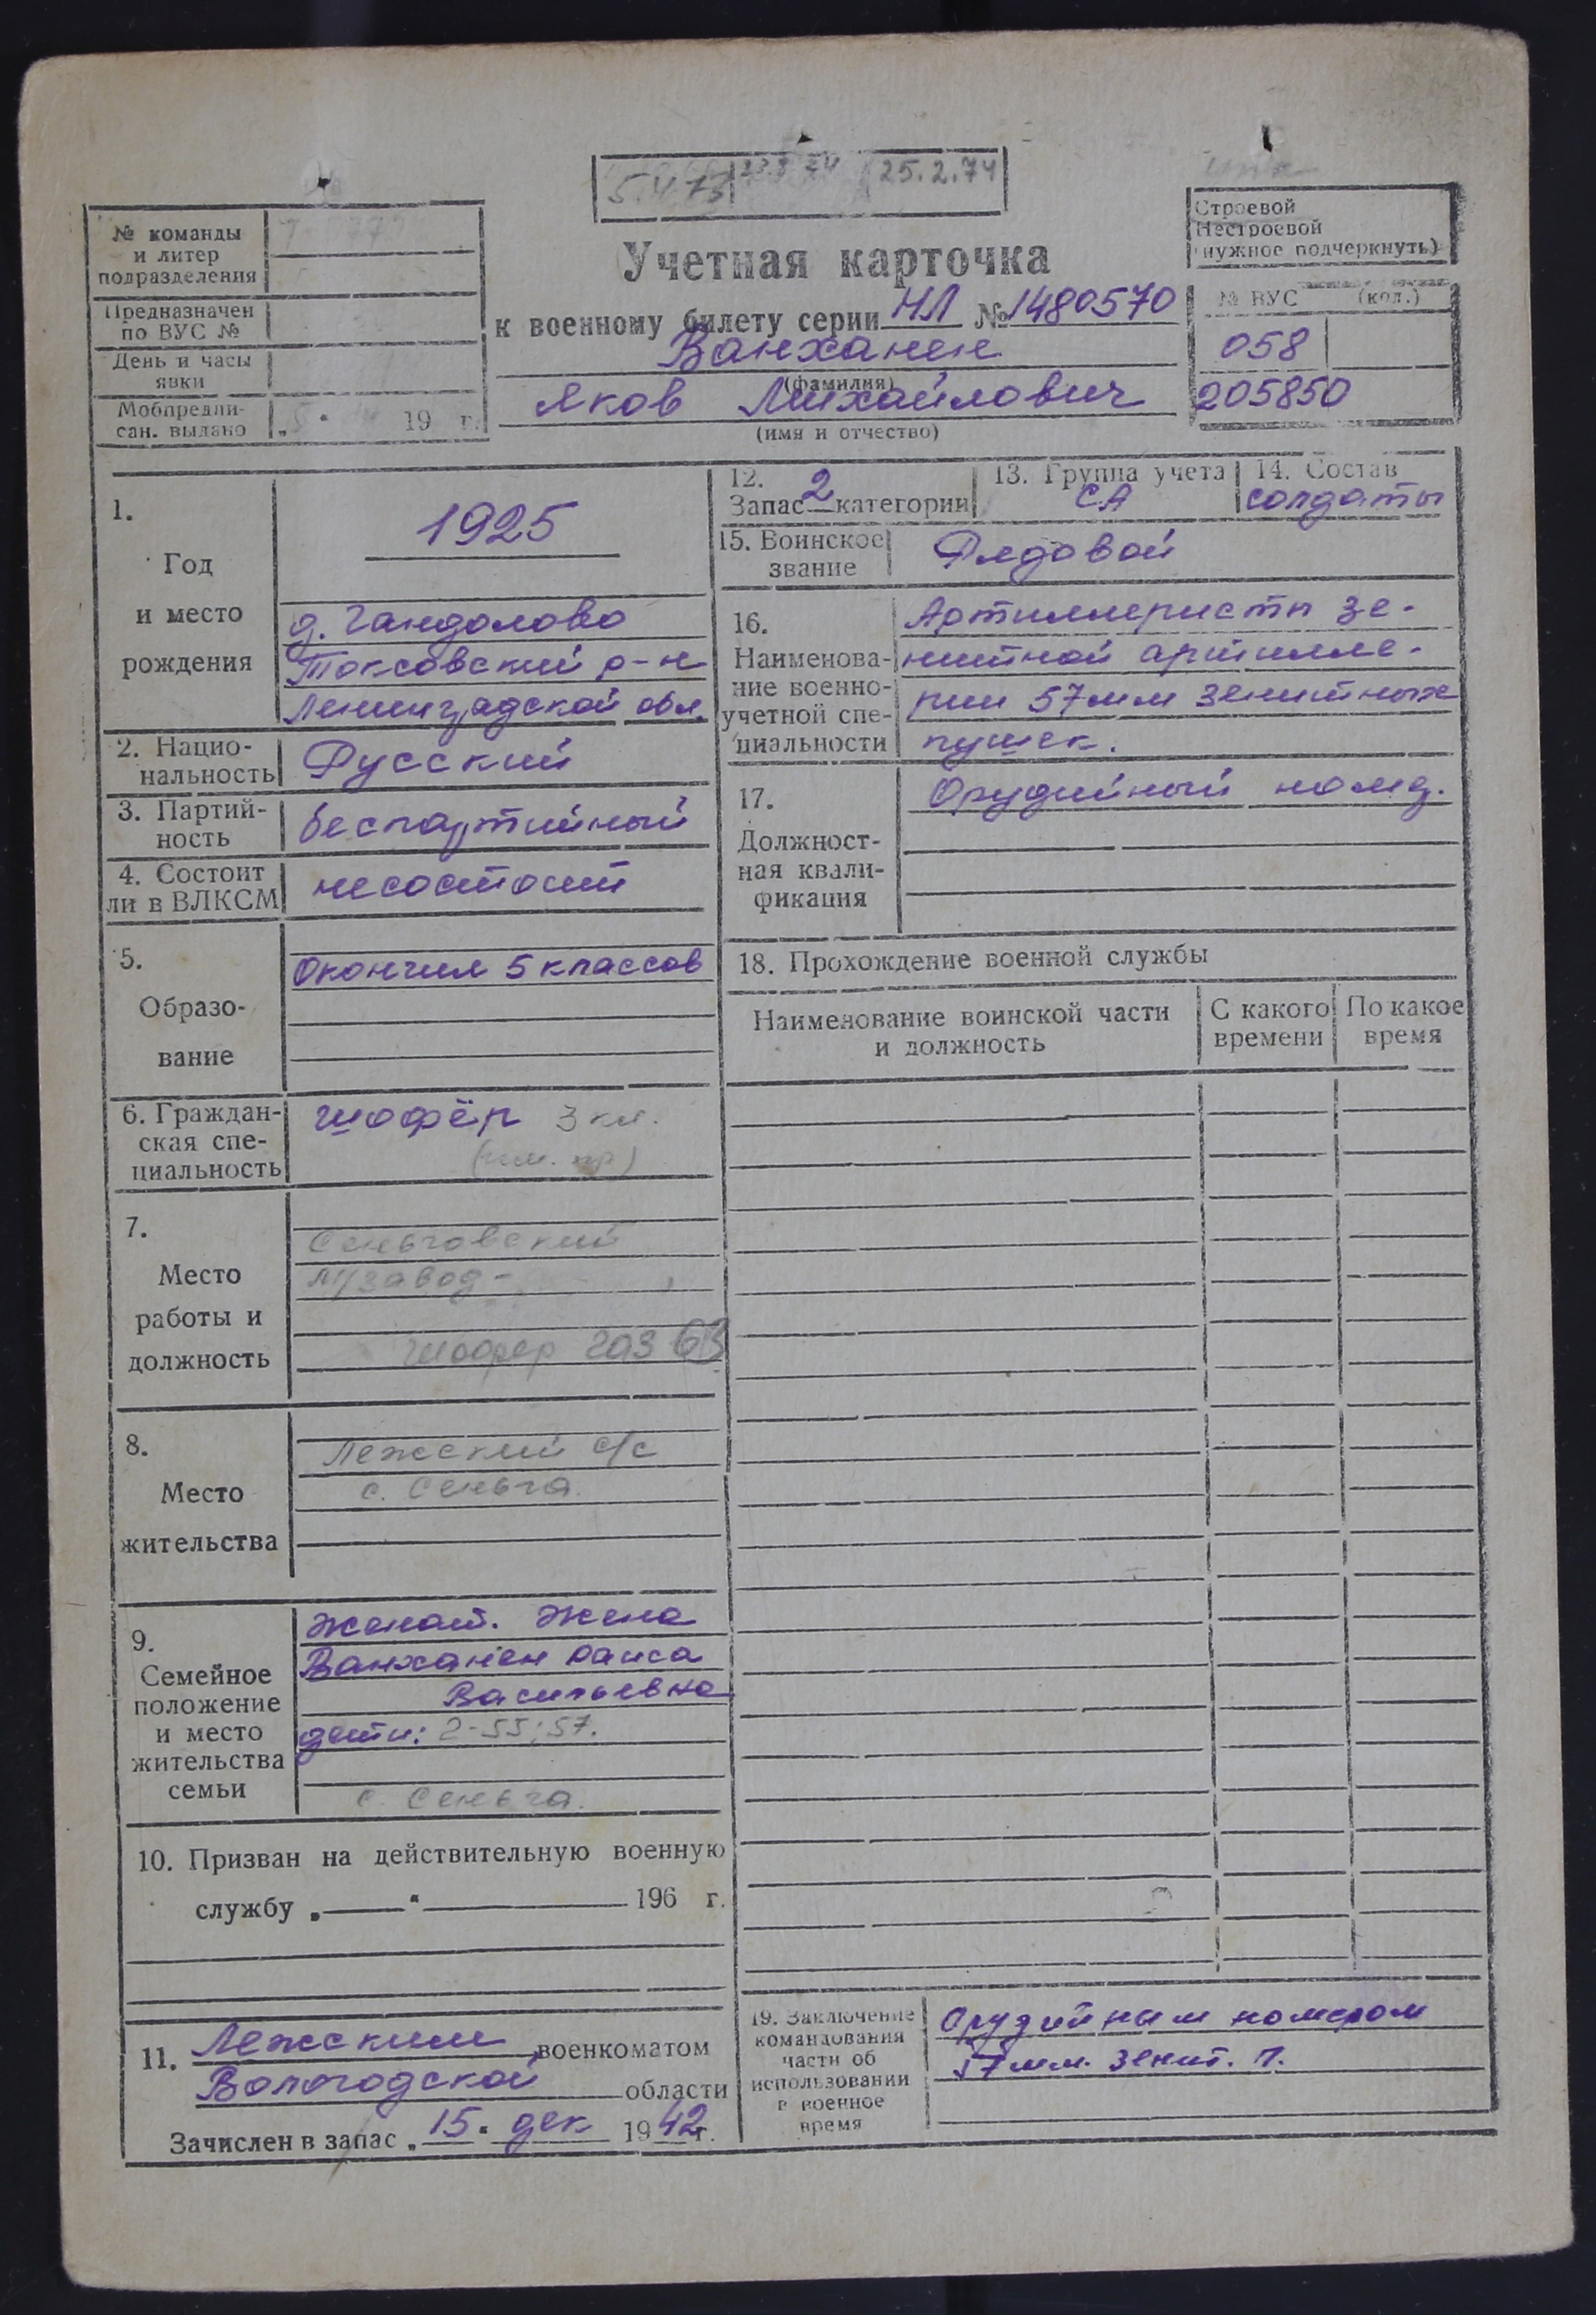 5.4.73 25.2.74
№ команды
и литер
подразделения
Предназначен
по ВУС №
День и часы
явки
Мобпредпи-
сан. выдано
19 г.
Учетная карточка
к военному билету серии НЛ № 1480570
Ванханен
(фамилия)
Яков Михайлович
(имя и отчество)
Строевой
Нестроевой
(нужное подчеркнуть)
№ ВУС (код.)
058
205850
1.
Год
и место
рождения
1925
д. Гандолово
Токсовский р-н
Ленинградской обл.
2. Нацио-
нальность
Русский
3. Партий-
ность
беспартийный
4. Состоит
ли в ВЛКСМ
несостоит
5.
Образо-
вание
Окончил 5 классов
6. Граждан-
ская спе-
циальность
шофёр 3 кл.
7.
Место
работы и
должность
Сеньговский
л/завод-
шофер газ 63
8.
Место
жительства
Лежский с/с
с. Сеньга.
9.
Семейное
положение
и место
жительства
семьи
Женат. Жена
Ванханен Раиса
Васильевна
дети: 2-55; 57.
с. Сеньга.
10. Призван на действительную военную
службу „ “ 196 г.
11. Лежским военкоматом
Вологодской области
Зачислен в запас „15“ дек 1942 г.
12.
Запас 2 категории
13. Группа учета
СА
14. Состав
солдаты
15. Воинское
звание
Рядовой
16.
Наименова-
ние военно-
учетной спе-
циальности
Артиллеристы зе-
нитной артилле-
рии 57мм зенитных
пушек.
17.
Должност-
ная квали-
фикация
Орудийный номер.
18. Прохождение военной службы
Наименование воинской части
и должность
С какого
времени
По какое
время
19. Заключение
командования
части об
использовании
в военное
время
Орудийным номером
57 мм. зенит. п.